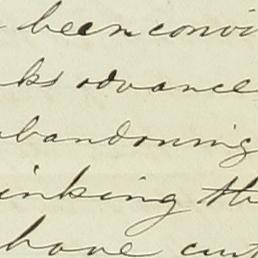 been convi
ks advance
abandoning
inking th
have cut